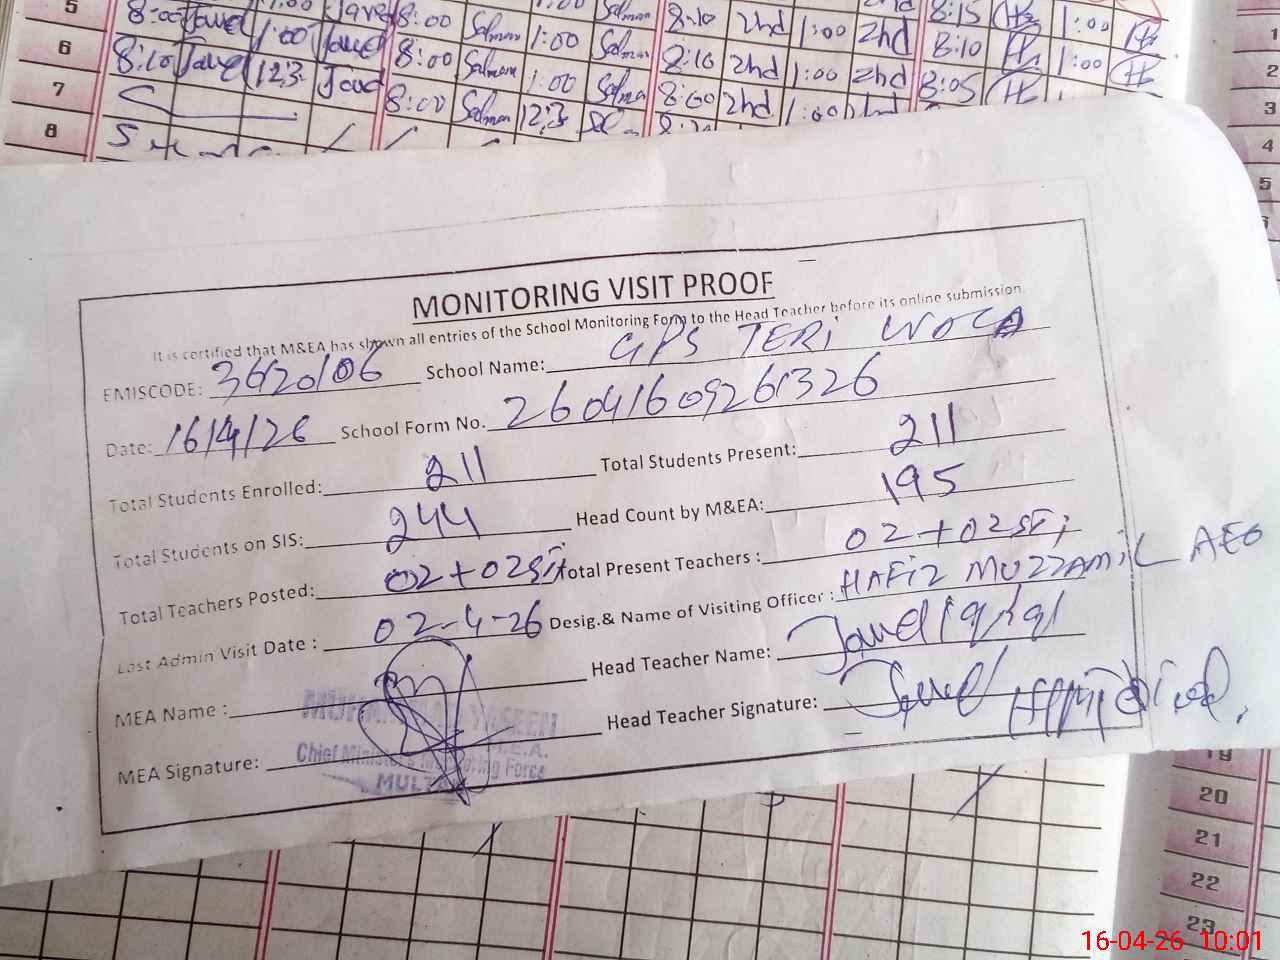 5 8:00 Javed 1:00 Javed 8:00 Salman 1:00 Salman 8:10 2nd 1:00 2nd 8:15 1:00
6 8:10 Javed 12:3 Javed 8:00 Salman 1:00 Salman 8:10 2nd 1:00 2nd 8:10 1:00
7 8:00 Salman 12:3 8:00 2nd 1:00 8:05
8
1
2
3
4
5
MONITORING VISIT PROOF
It is certified that M&EA has shown all entries of the School Monitoring Form to the Head Teacher before its online submission.
EMISCODE: 36120106 School Name: GPS TERI
Date: 16/4/26 School Form No. 26041609261326
Total Students Enrolled: 211 Total Students Present: 211
Total Students on SIS: 244 Head Count by M&EA: 195
Total Teachers Posted: 02+02STi Total Present Teachers : 02+02STi
Last Admin Visit Date : 02-4-26 Desig.& Name of Visiting Officer : HAFIZ MUZZAMIL AEO
MEA Name : Head Teacher Name: Javed Iqbal
MEA Signature: Head Teacher Signature: Javed
MUHAMMAD YASEEN
M.E.A.
Chief Minister's Monitoring Force
MULTAN
19
20
21
22
23
16-04-26 10:01